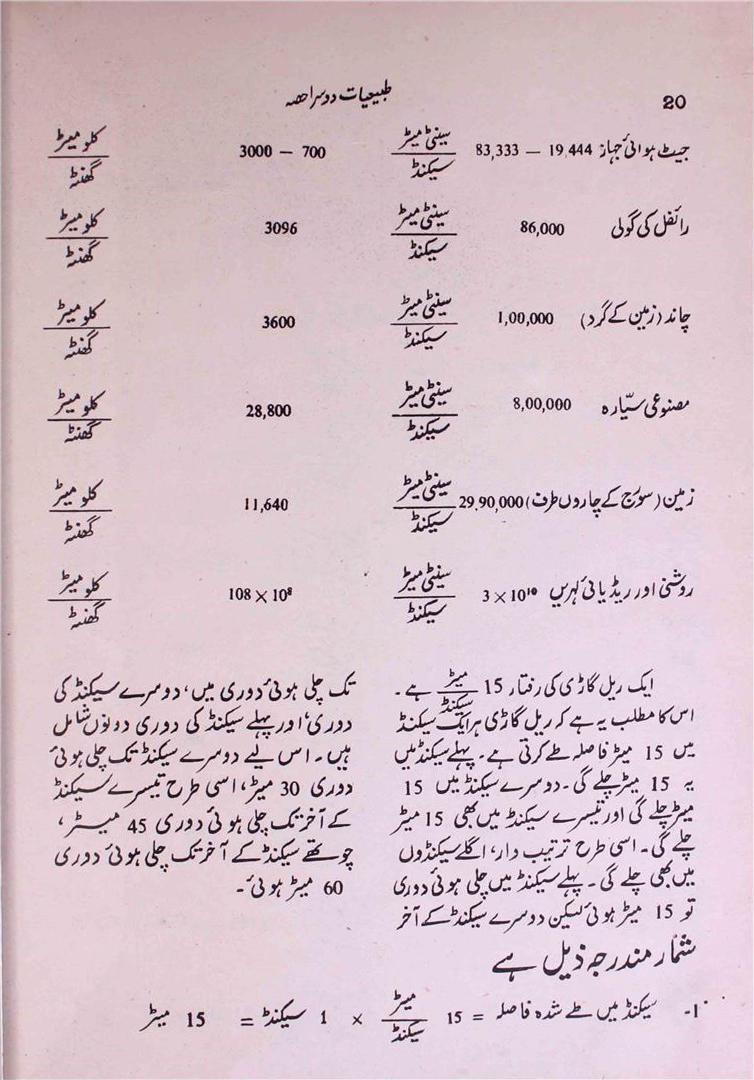 20 طبیعیات دوسرا حصہ
جیٹ ہوائی جہاز 19,444 — 83,333 سینٹی میٹر/سیکنڈ 700 — 3000 کلو میٹر/گھنٹہ
رائفل کی گولی 86,000 سینٹی میٹر/سیکنڈ 3096 کلو میٹر/گھنٹہ
چاند (زمین کے گرد) 1,00,000 سینٹی میٹر/سیکنڈ 3600 کلو میٹر/گھنٹہ
مصنوعی سیّارہ 8,00,000 سینٹی میٹر/سیکنڈ 28,800 کلو میٹر/گھنٹہ
زمین (سورج کے چاروں طرف) 29,90,000 سینٹی میٹر/سیکنڈ 11,640 کلو میٹر/گھنٹہ
روشنی اور ریڈیائی لہریں 3 × 10¹⁰ سینٹی میٹر/سیکنڈ 108 × 10⁸ کلو میٹر/گھنٹہ
ایک ریل گاڑی کی رفتار 15 میٹر/سیکنڈ ہے۔
اس کا مطلب یہ ہے کہ ریل گاڑی ہر ایک سیکنڈ
میں 15 میٹر فاصلہ طے کرتی ہے۔ پہلے سیکنڈ میں
یہ 15 میٹر چلے گی۔ دوسرے سیکنڈ میں 15
میٹر چلے گی اور تیسرے سیکنڈ میں بھی 15 میٹر
چلے گی۔ اسی طرح ترتیب دار، اگلے سیکنڈوں
میں بھی چلے گی۔ پہلے سیکنڈ میں چلی ہوئی دوری
تو 15 میٹر ہوئی لیکن دوسرے سیکنڈ کے آخر
تک چلی ہوئی دوری میں، دوسرے سیکنڈ کی
دوری، اور پہلے سیکنڈ کی دوری دونوں شامل
ہیں۔ اس لیے دوسرے سیکنڈ تک چلی ہوئی
دوری 30 میٹر، اسی طرح تیسرے سیکنڈ
کے آخر تک چلی ہوئی دوری 45 میٹر،
چوتھے سیکنڈ کے آخر تک چلی ہوئی دوری
60 میٹر ہوئی۔
شمار مندرجہ ذیل ہے
1۔ سیکنڈ میں طے شدہ فاصلہ = 15 میٹر/سیکنڈ × 1 سیکنڈ = 15 میٹر